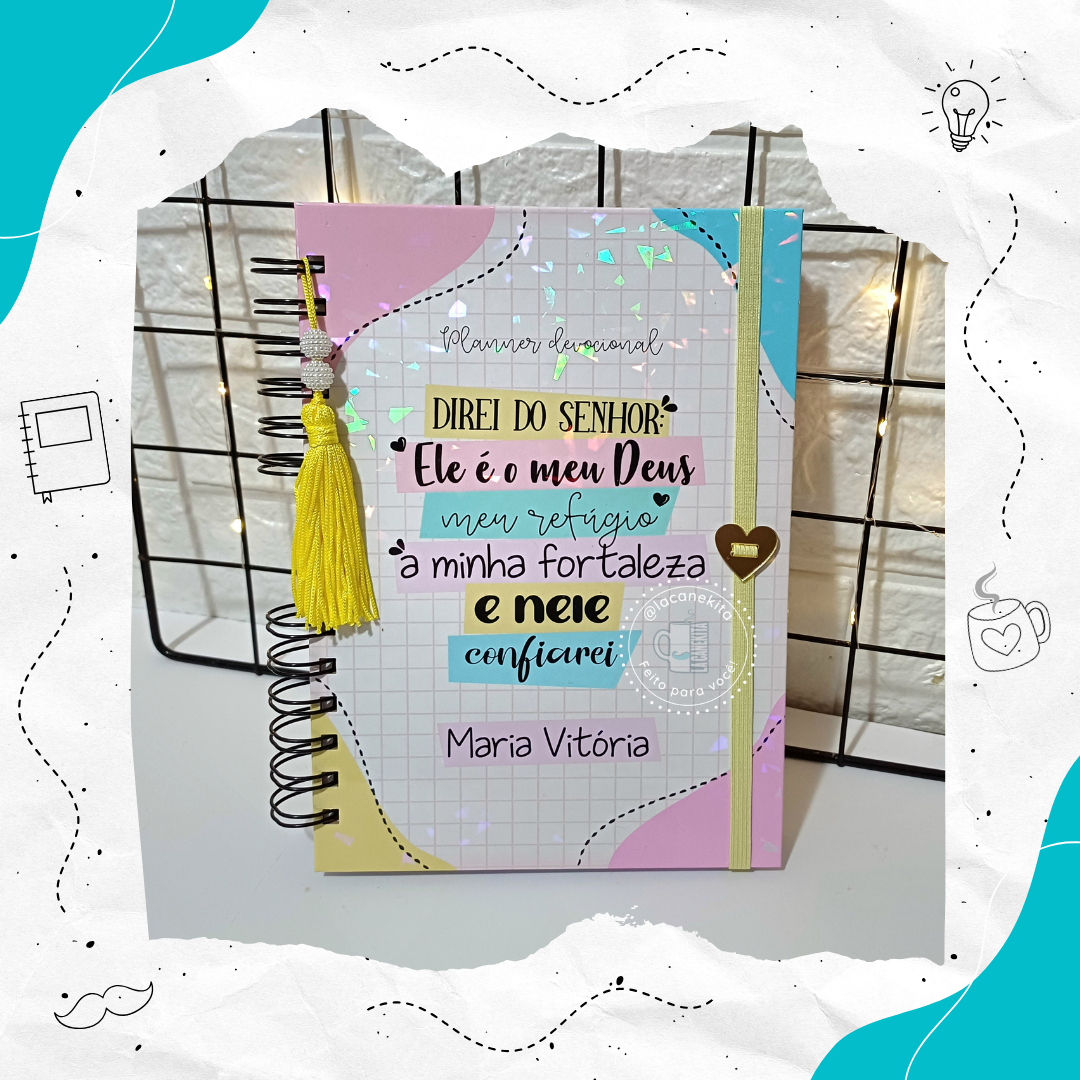 Planner devocional
DIREI DO SENHOR:
Ele é o meu Deus
meu refúgio
a minha fortaleza
e nele
confiarei
@lacanekita
LA CANEKITA
Feito para você!
Maria Vitória